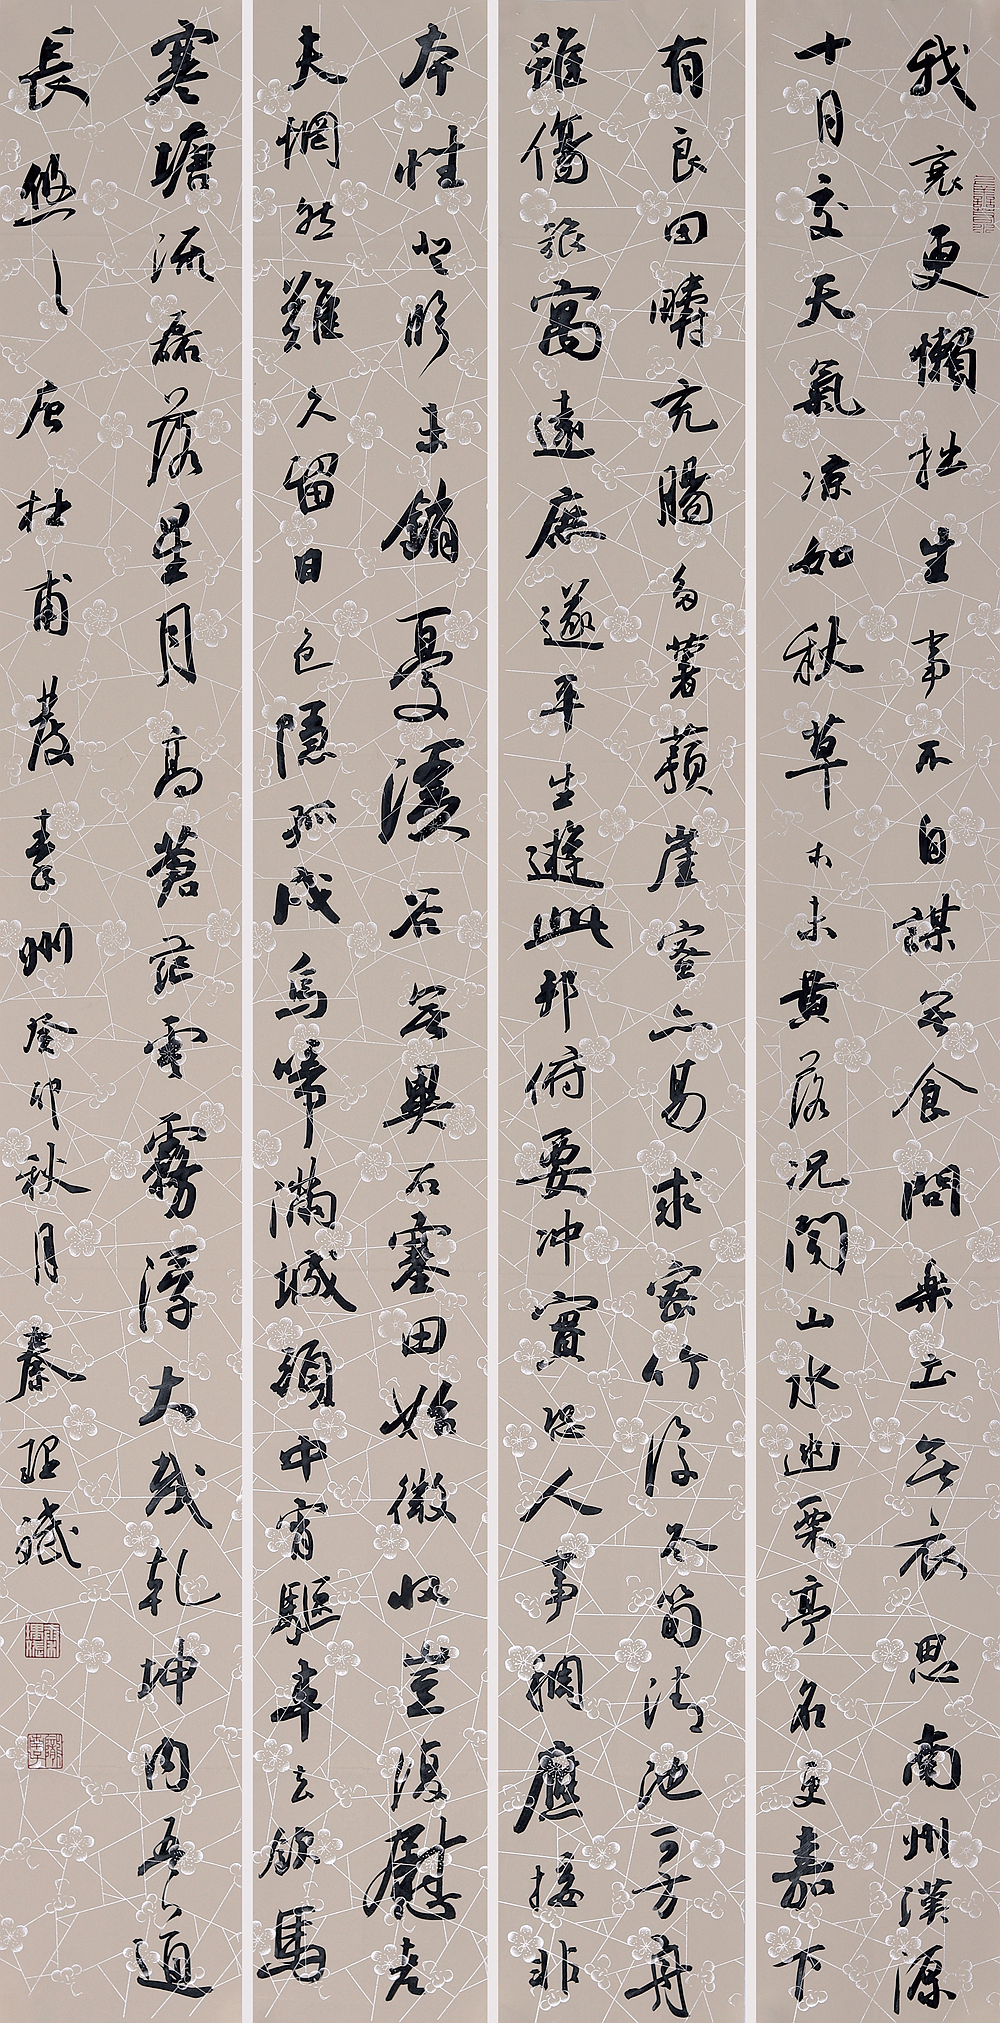 我衰更懶拙生事不自謀無食問樂土無衣思南州漢源
十月交天氣涼如秋草木未黃落況聞山水幽栗亭名更嘉下
有良田疇充腸多薯蕷崖蜜亦易求密竹復冬筍清池可方舟
雖傷旅寓遠庶遂平生遊此邦俯要沖實恐人事稠應接非
本性登臨未銷憂溪谷無異石塞田始微收豈復慰老
夫惘然難久留日色隱孤戍烏啼滿城頭中宵驅車去飲馬
寒塘流磊落星月高蒼茫雲霧浮大哉乾坤內吾道
長悠悠唐杜甫發秦州癸卯秋月秦